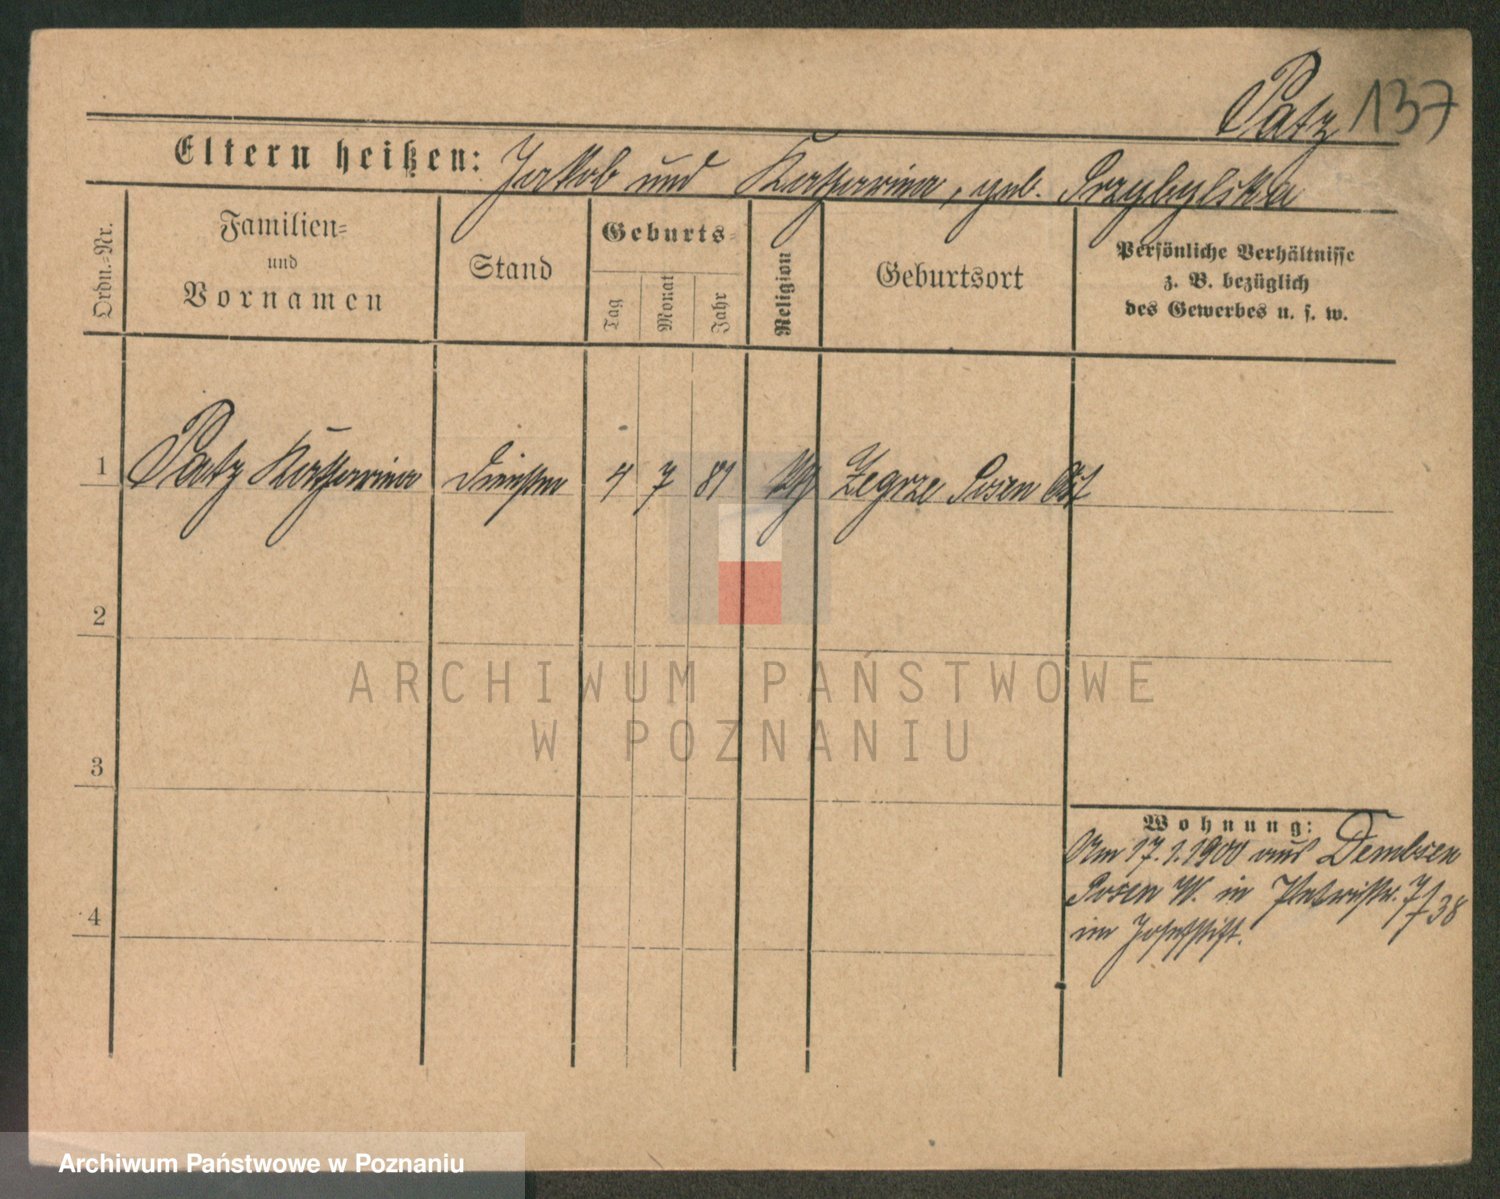 Patz 137
Eltern heißen: Jakob und Katharina, geb. Przybylska
Ordn.-Nr.
Familien-
und
Vornamen
Stand
Geburts-
Tag
Monat
Jahr
Religion
Geburtsort
Persönliche Verhältnisse
z. B. bezüglich
des Gewerbes u. s. w.
1 Patz Katharina 4 7 81 Zegrze Posen Ost
2
3
4
Wohnung:
Am 17.1.1900 aus Dembsen
Posen W. in 7/38
im Josefstift.
ARCHIWUM PAŃSTWOWE
W POZNANIU
Archiwum Państwowe w Poznaniu